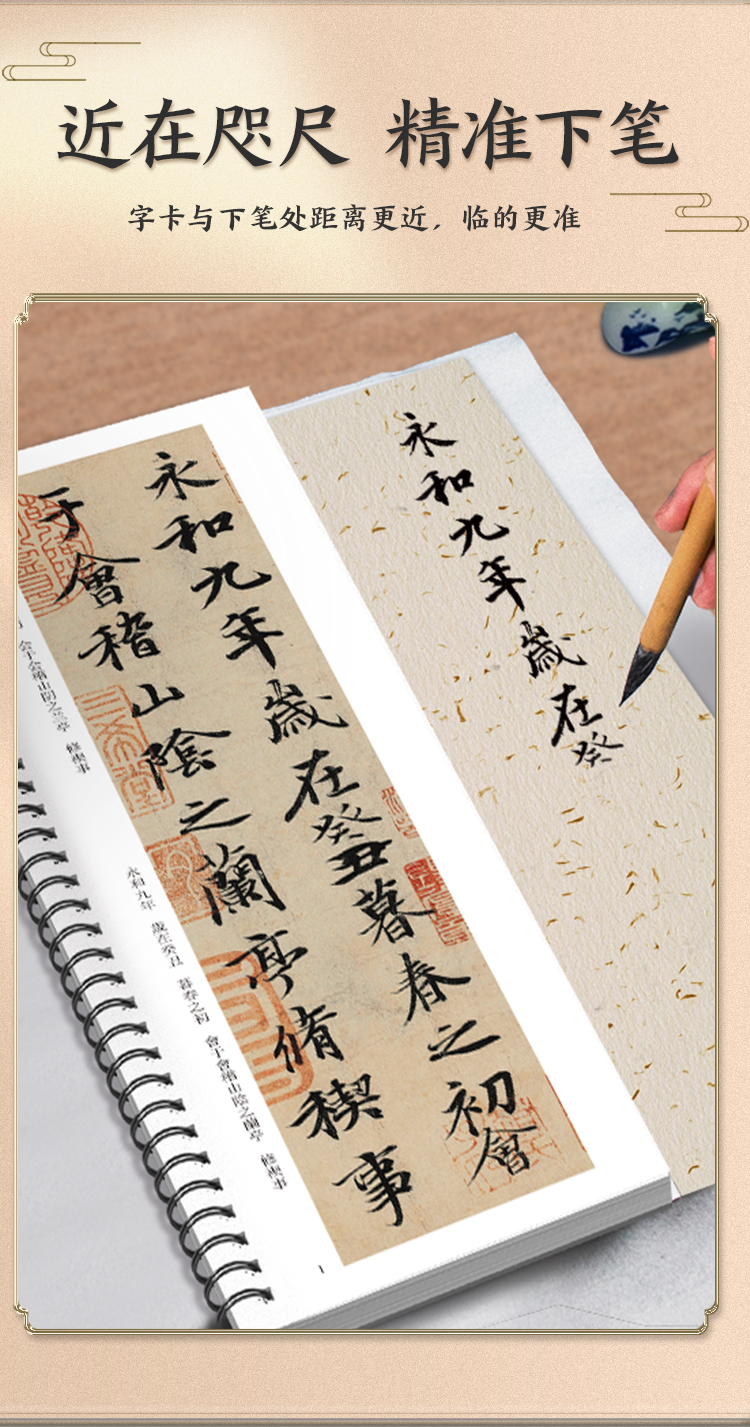 近在咫尺 精准下笔
字卡与下笔处距离更近，临的更准
永和九年歲在癸丑暮春之初會
于會稽山陰之蘭亭脩稧事
永和九年歲在癸
永和九年 歲在癸丑 暮春之初 會于會稽山陰之蘭亭 修禊事
会于会稽山阴之兰亭 修禊事
1